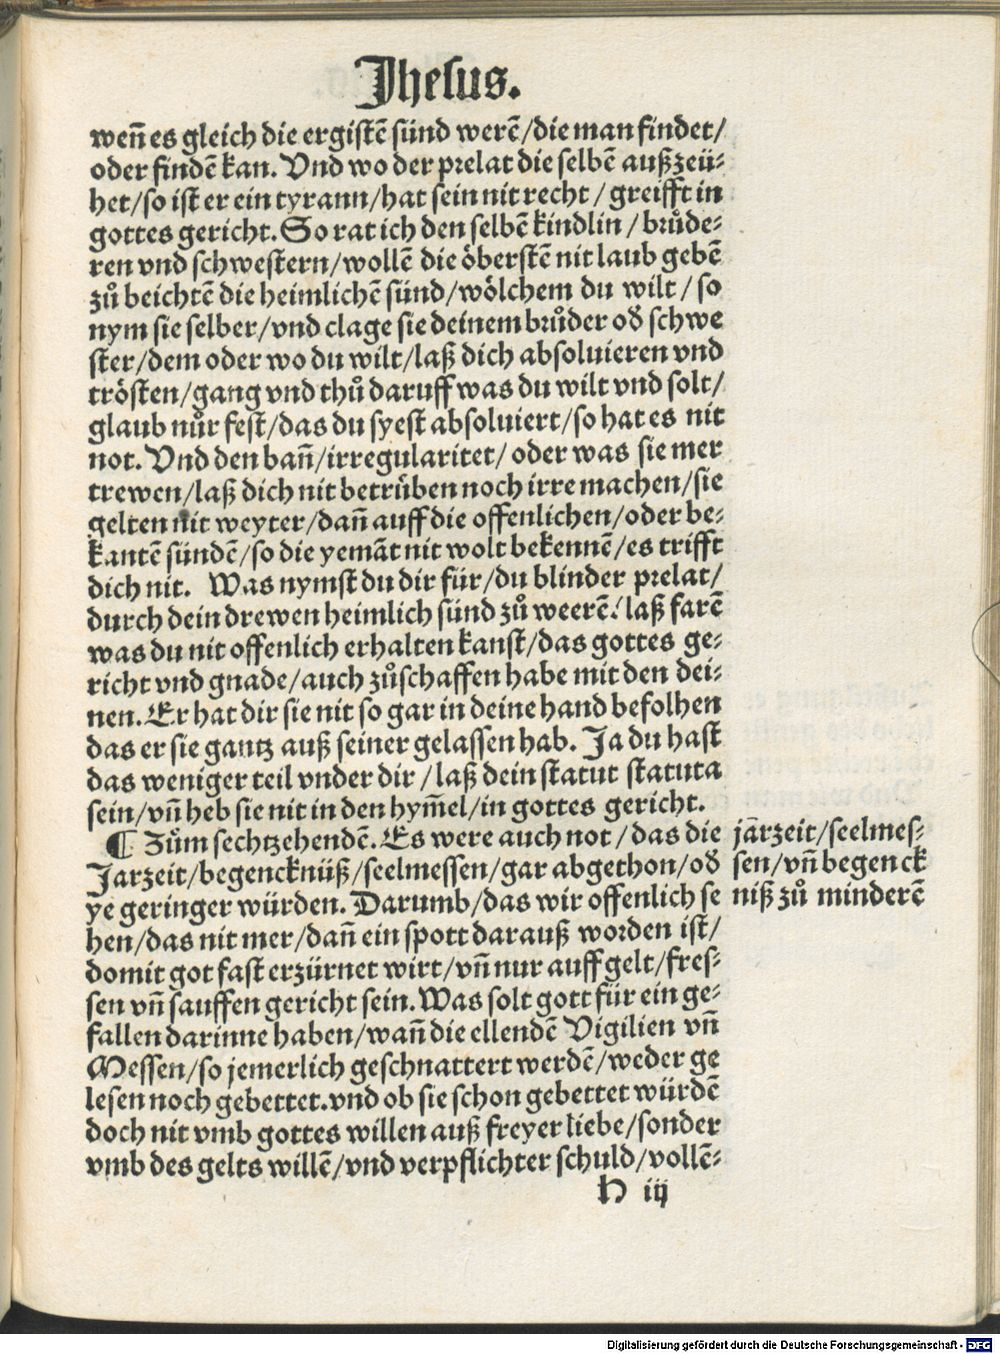 Jhesus.
weñ es gleich die ergistē sünd werē/die man findet/
oder findē kan. Vnd wo der prelat die selbē außzeü⸗
het/so ist er ein tyrann/hat sein nit recht / greifft in
gottes gericht. So rat ich den selbē kindlin / brůde⸗
ren vnd schwestern/wollē die öberstē nit laub gebē
zů beichtē die heimlichē sünd/wölchem du wilt / so
nym sie selber/vnd clage sie deinem brůder oð schwe
ster/dem oder wo du wilt/laß dich absoluieren vnd
trösten/gang vnd thů daruff was du wilt vnd solt/
glaub nůr fest/das du syest absoluiert/so hat es nit
not. Vnd den bañ/irregularitet/ oder was sie mer
trewen/laß dich nit betrüben noch irre machen/sie
gelten nit weyter/dañ auff die offenlichen/oder be⸗
kantē sündē/so die yemāt nit wolt bekennē/es trifft
dich nit. Was nymst du dir für/du blinder prelat/
durch dein drewen heimlich sünd zů weerē/laß farē
was du nit offenlich erhalten kanst/das gottes ge⸗
richt vnd gnade/auch zůschaffen habe mit den dei⸗
nen. Er hat dir sie nit so gar in deine hand befolhen
das er sie gantz auß seiner gelassen hab. Ja du hast
das weniger teil vnder dir / laß dein statut statuta
sein/vñ heb sie nit in den hym̄el/in gottes gericht.
¶ Zům sechtzehendē. Es were auch not / das die
Jarzeit/begencknüß/seelmessen/gar abgethon/oð
ye geringer würden. Darumb/das wir offenlich se
hen/das nit mer/dañ ein spott darauß worden ist/
domit got fast erzürnet wirt/vñ nur auff gelt/fres⸗
sen vñ sauffen gericht sein. Was solt gott für ein ge⸗
fallen darinne haben/wañ die ellendē Vigilien vñ
Messen/so jemerlich geschnattert werdē/weder ge
lesen noch gebettet. vnd ob sie schon gebettet würdē
doch nit vmb gottes willen auß freyer liebe/sonder
vmb des gelts willē/vnd verpflichter schuld/vollē⸗
H iij
jārzeit/seelmes⸗
sen/vñ begenck
niß zů minderē
Digitalisierung gefördert durch die Deutsche Forschungsgemeinschaft - DFG